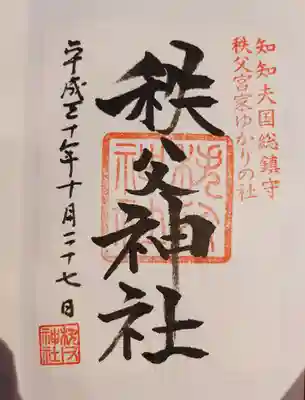 知知夫国総鎮守
秩父宮家ゆかりの社
秩父神社
平成三十年十月二十七日
秩父
神社
秩父
神社